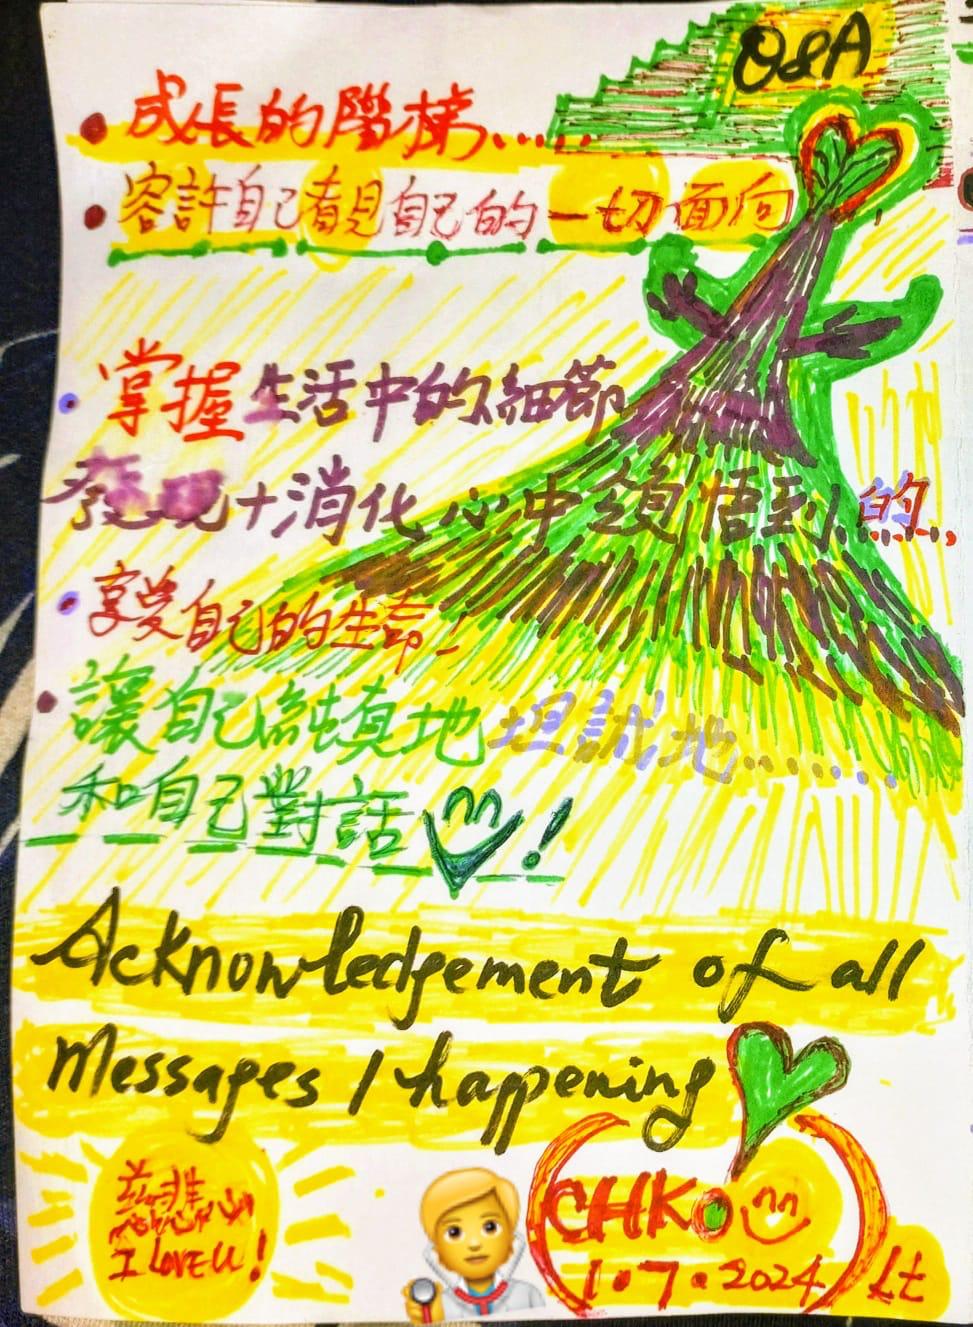 Q&A
• 成長的階梯......
• 容許自己看見自己的一切面向
• 掌握生活中的細節
發現+消化心中領悟到的...
• 享受自己的生命!
• 讓自己純真地坦誠地.......
和自己對話!
Acknowledgement of all
Messages / happening
I LOVE U!
CHKO
1.7.2024